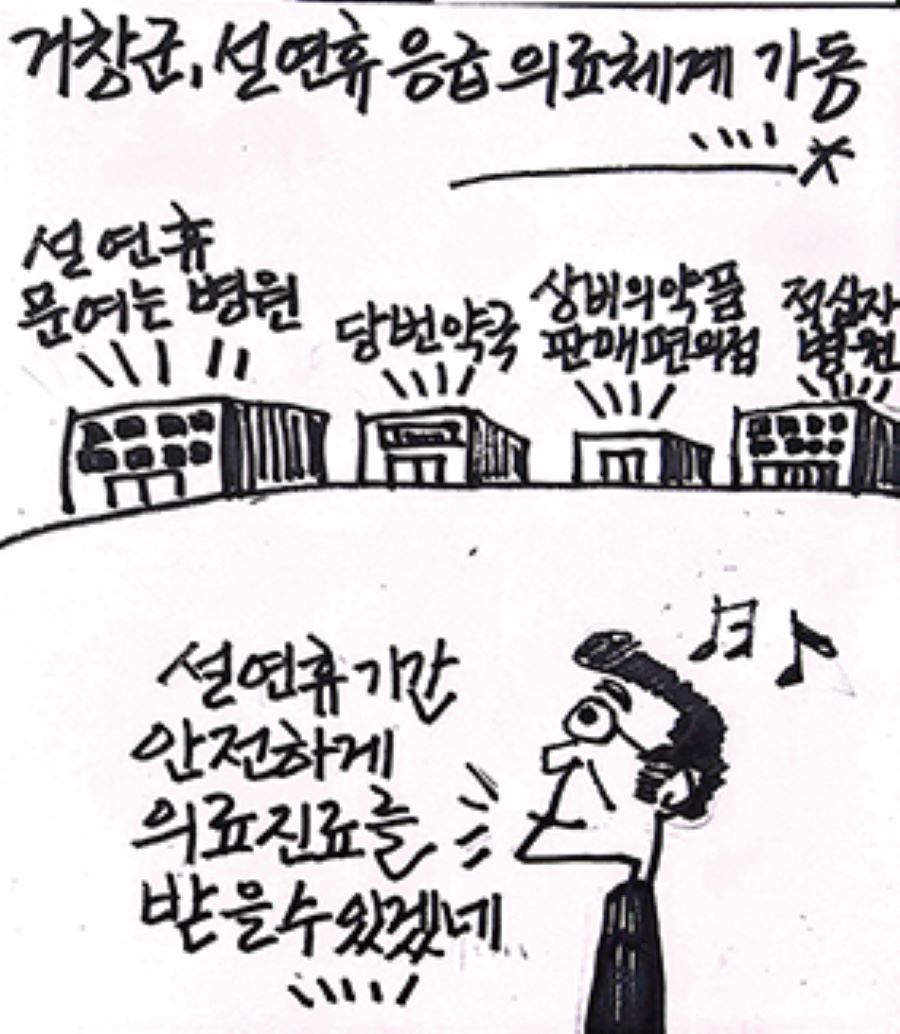 거창군, 설연휴 응급 의료체계 가동
설 연휴
문여는 병원
당번약국
상비의약품
판매편의점
적십자
병원
설연휴 기간
안전하게
의료진료를
받을수있겠네